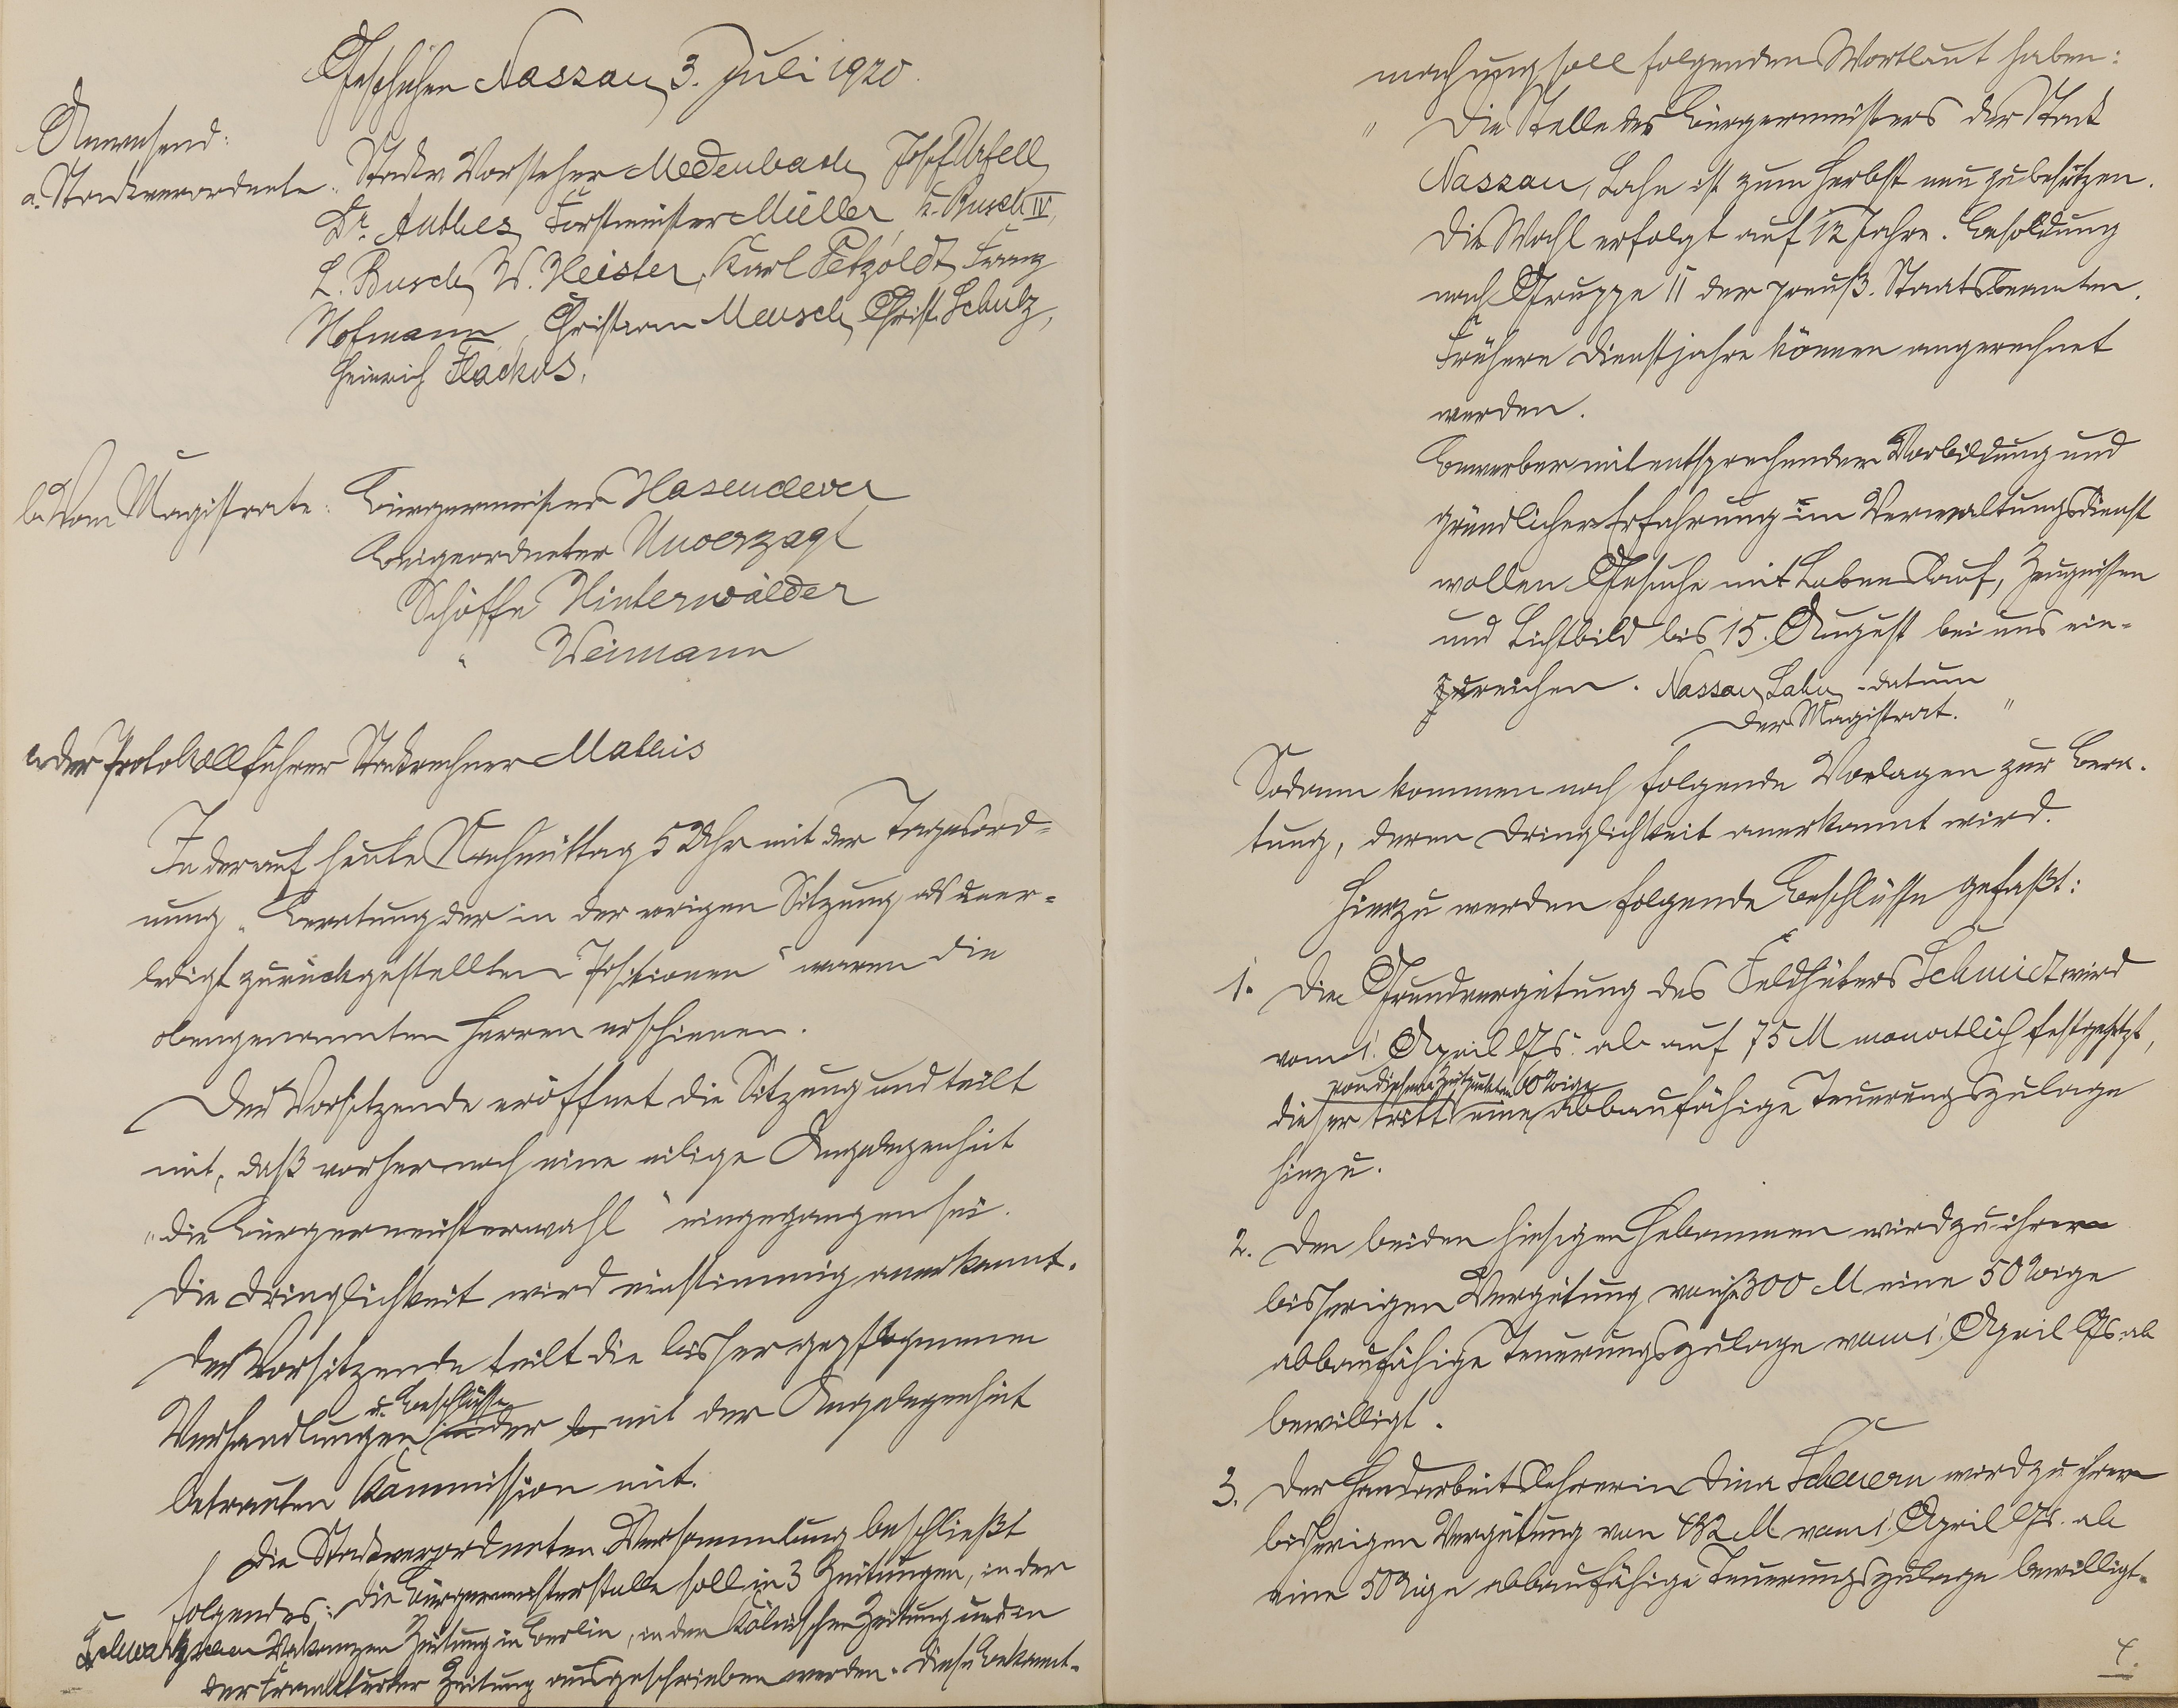 Geschehen Nassau, 3. Juli 1920.
Anwesend:
a. Stadtverordnete: Stadtv. Vorsteher Medenbach, Josef Urfell,
Dr. Anthes, Forstmeister Müller, K. Busch IV,
L. Busch, W. Heister, Karl Petzoldt, Franz
Hofmann, Christian Meusch, Christ. Schulz,
Heinrich Flackus.
b. Vom Magistrate: Bürgermeister Hasenclever
Beigeordneter Unverzagt
Schöffe Hinterwälder
" Weimann
c. der Protokollführer Stadtrechner Mathis
In der auf heute Nachmittag 5 Uhr mit der Tagesord-
nung „Beratung der in der vorigen Sitzung als uner-
ledigt zurückgestellten Positionen" waren die
obengenannten Herren erschienen.
Der Vorsitzende eröffnet die Sitzung und teilt
mit, daß vorher noch eine eilige Angelegenheit
„die Bürgermeisterwahl" eingegangen sei.
Die Dringlichkeit wird einstimmig anerkannt.
Der Vorsitzende teilt die bisher gepflogenen
u. Beschlüsse
Verhandlungen in der mit der Angelegenheit
betrauten Kommission mit.
Die Stadtverordneten Versammlung beschließt
folgendes: Die Bürgermeisterstelle soll in 3 Zeitungen, in der
Vakanzen Zeitung in Berlin, in der Kölnischen Zeitung und in
der Frankfurter Zeitung ausgeschrieben werden. Diese Bekannt-
machung soll folgenden Wortlaut haben:
" Die Stelle des Bürgermeisters der Stadt
Nassau, Lahn ist zum Herbst neu zu besetzen.
Die Wahl erfolgt auf 12 Jahre. Besoldung
nach Gruppe 11 der preuß. Staatsbeamten.
Frühere Dienstjahre können angerechnet
werden.
Bewerber mit entsprechender Vorbildung und
gründlicher Erfahrung im Verwaltungsdienst
wollen Gesuche mit Lebenslauf, Zeugnissen
und Lichtbild bis 15. August bei uns ein-
zureichen. Nassau, Lahn, datum
Der Magistrat. "
Sodann kommen noch folgende Vorlagen zur Bera-
tung, deren Dringlichkeit anerkannt wird.
Hierzu werden folgende Beschlüsse gefaßt:
1. Die Grundvergütung des Feldhüters Schmidt wird
vom 1. April Js. ab auf 75 M monatlich festgesetzt,
von diesem Zeitpunkte 50%ige
dieser tritt eine abbaufähige Teuerungszulage
hinzu.
2. Den beiden hiesigen Hebammen wird zu ihrer
bisherigen Vergütung von je 300 M eine 50%ige
abbaufähige Teuerungszulage vom 1. April Js. ab
bewilligt.
3. Der Handarbeitslehrerin Dina Scheuern wird zu ihrer
bisherigen Vergütung von M vom 1. April Js. ab
eine 50%ige abbaufähige Teuerungszulage bewilligt.